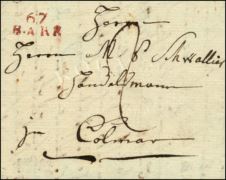 67
BARR
Herrn
Herrn M S Schwallier
Handelsmann
Colmar